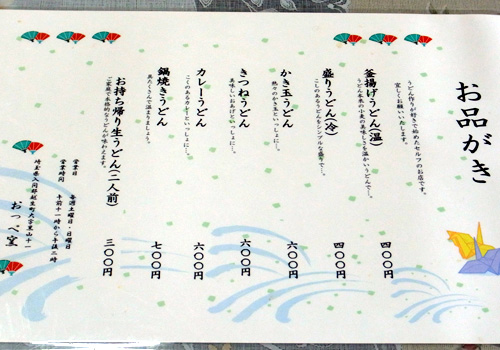 お品がき
うどん作りが好きで始めたセルフのお店です。
宜しくお願いいたします。
釜揚げうどん(温) 四〇〇円
うどん本来の小麦の美味しさを温かいうどんで…。
盛りうどん(冷) 四〇〇円
こしのあるうどんをシンプルな盛りで…。
かき玉うどん 六〇〇円
熱々のかき玉といっしょに…。
きつねうどん 六〇〇円
美味しいおあげといっしょに…。
カレーうどん 六〇〇円
こくのあるカレーといっしょに…。
鍋焼きうどん 七〇〇円
具たくさんで温まりましょう。
お持ち帰り生うどん(二人前) 三〇〇円
ご家庭で本格的なうどんが味わえます。
営業日 毎週土曜日・日曜日
営業時間 午前十一時から午後三時
埼玉県入間郡越生町大字黒山十一
おっぺ室